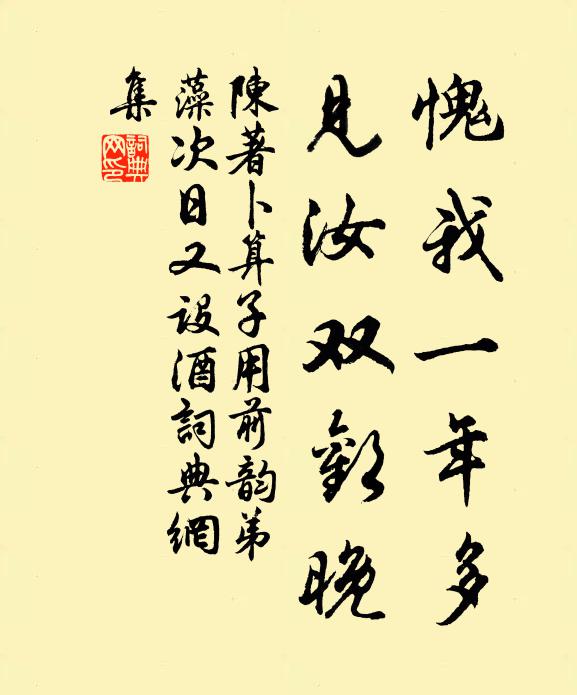 愧我一年多
見汝双歡晚
陳著卜算子用前韵弟
藻次日又设酒詞典網
集
詞典網印